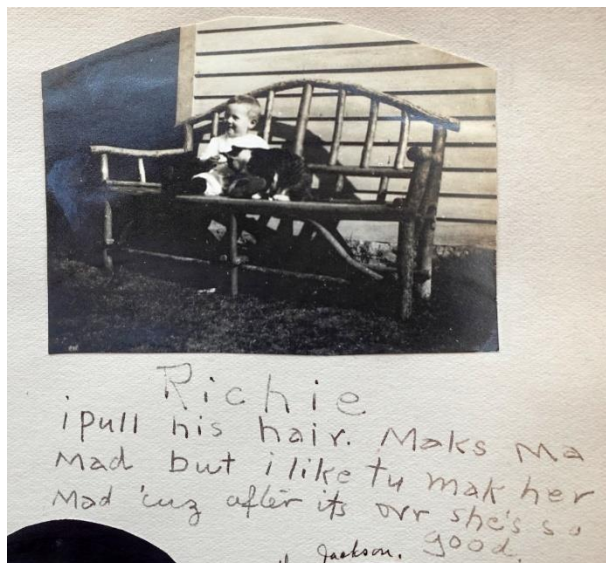 Richie
i pull his hair. Maks Ma
Mad but i like tu mak her
Mad 'cuz after its ovr she's so
good.
Jackson.